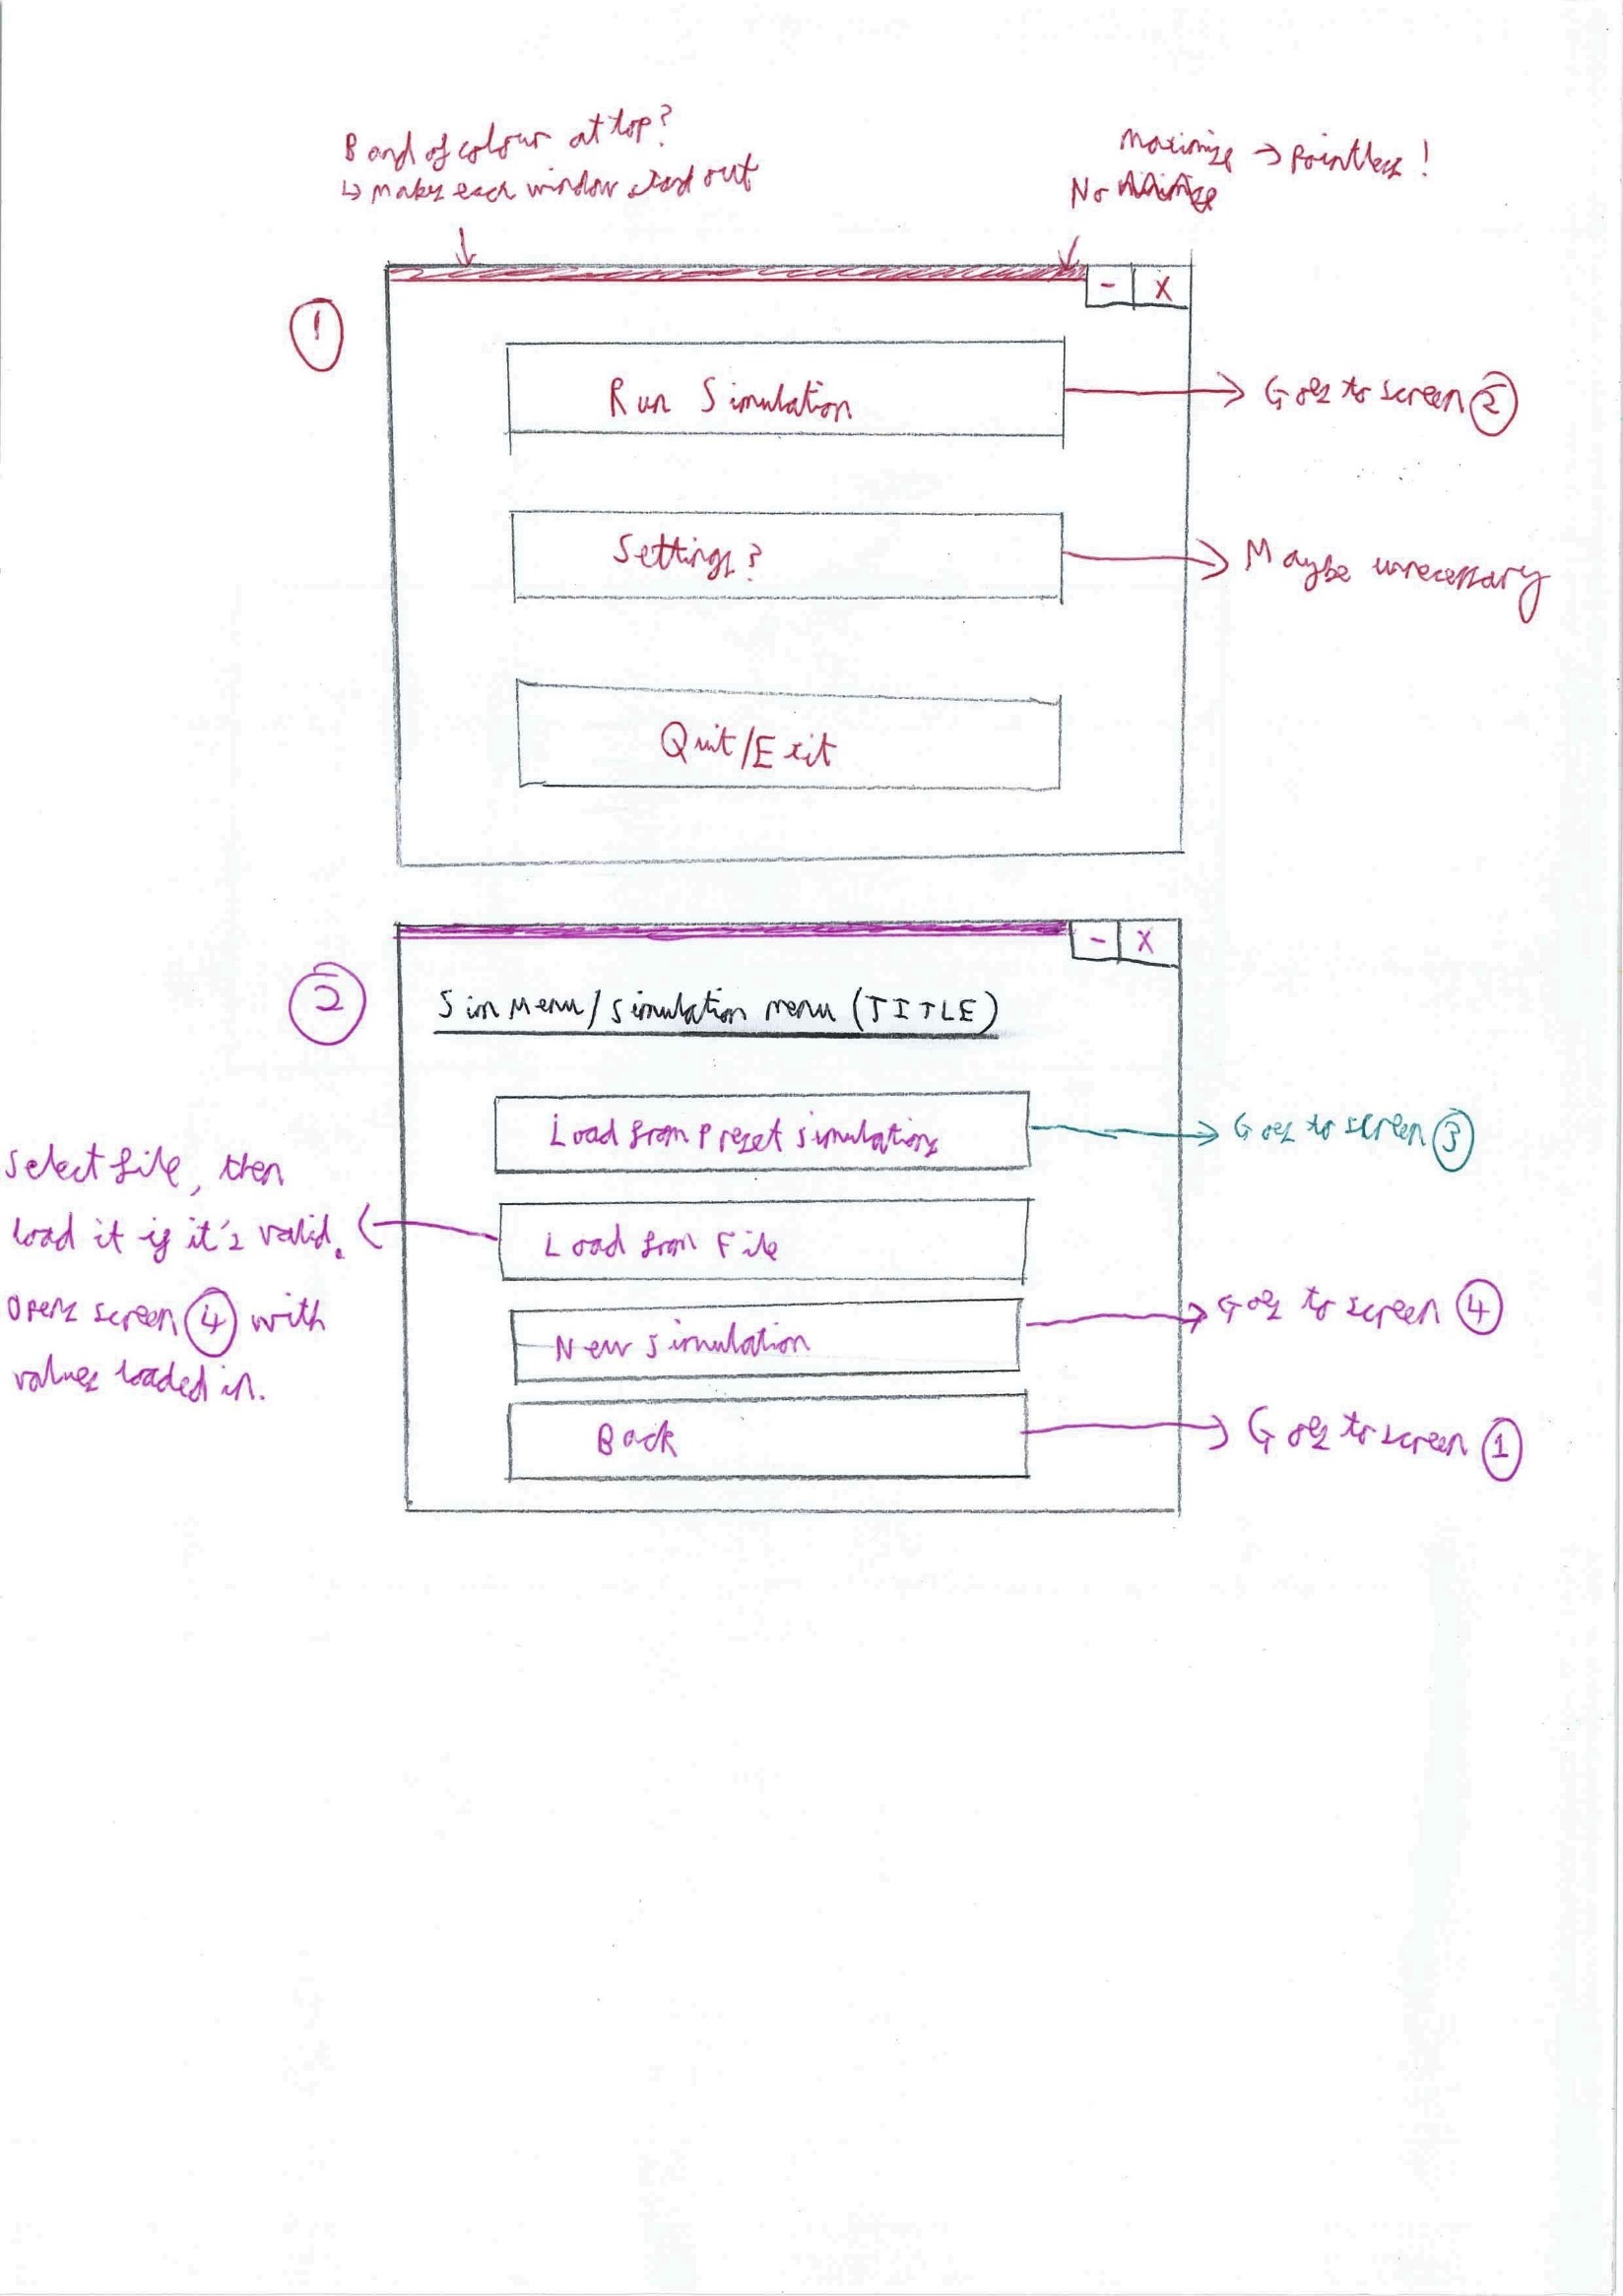 Band of colour at top?
↳ makes each window stand out
Maximize → Pointless!
No
- X
1
Run Simulation
Goes to screen 2
Settings?
Maybe unnecessary
Quit/Exit
- X
2
Sim Menu/Simulation menu (TITLE)
Load from Preset simulations
Goes to screen 3
Select file, then
load it if it's valid.
Opens screen 4 with
values loaded in.
Load from File
New Simulation
Goes to screen 4
Back
Goes to screen 1